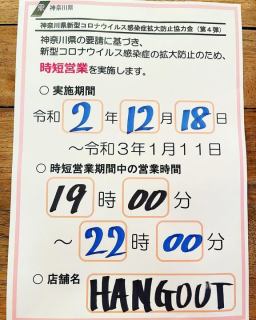 神奈川県
神奈川県新型コロナウイルス感染症拡大防止協力金（第４弾）
神奈川県の要請に基づき、
新型コロナウイルス感染症の拡大防止のため、
時短営業を実施します。
○ 実施期間
令和 2 年 12 月 18 日
～令和３年１月１１日
○ 時短営業期間中の営業時間
19 時 00 分
～ 22 時 00 分
○ 店舗名 HANGOUT